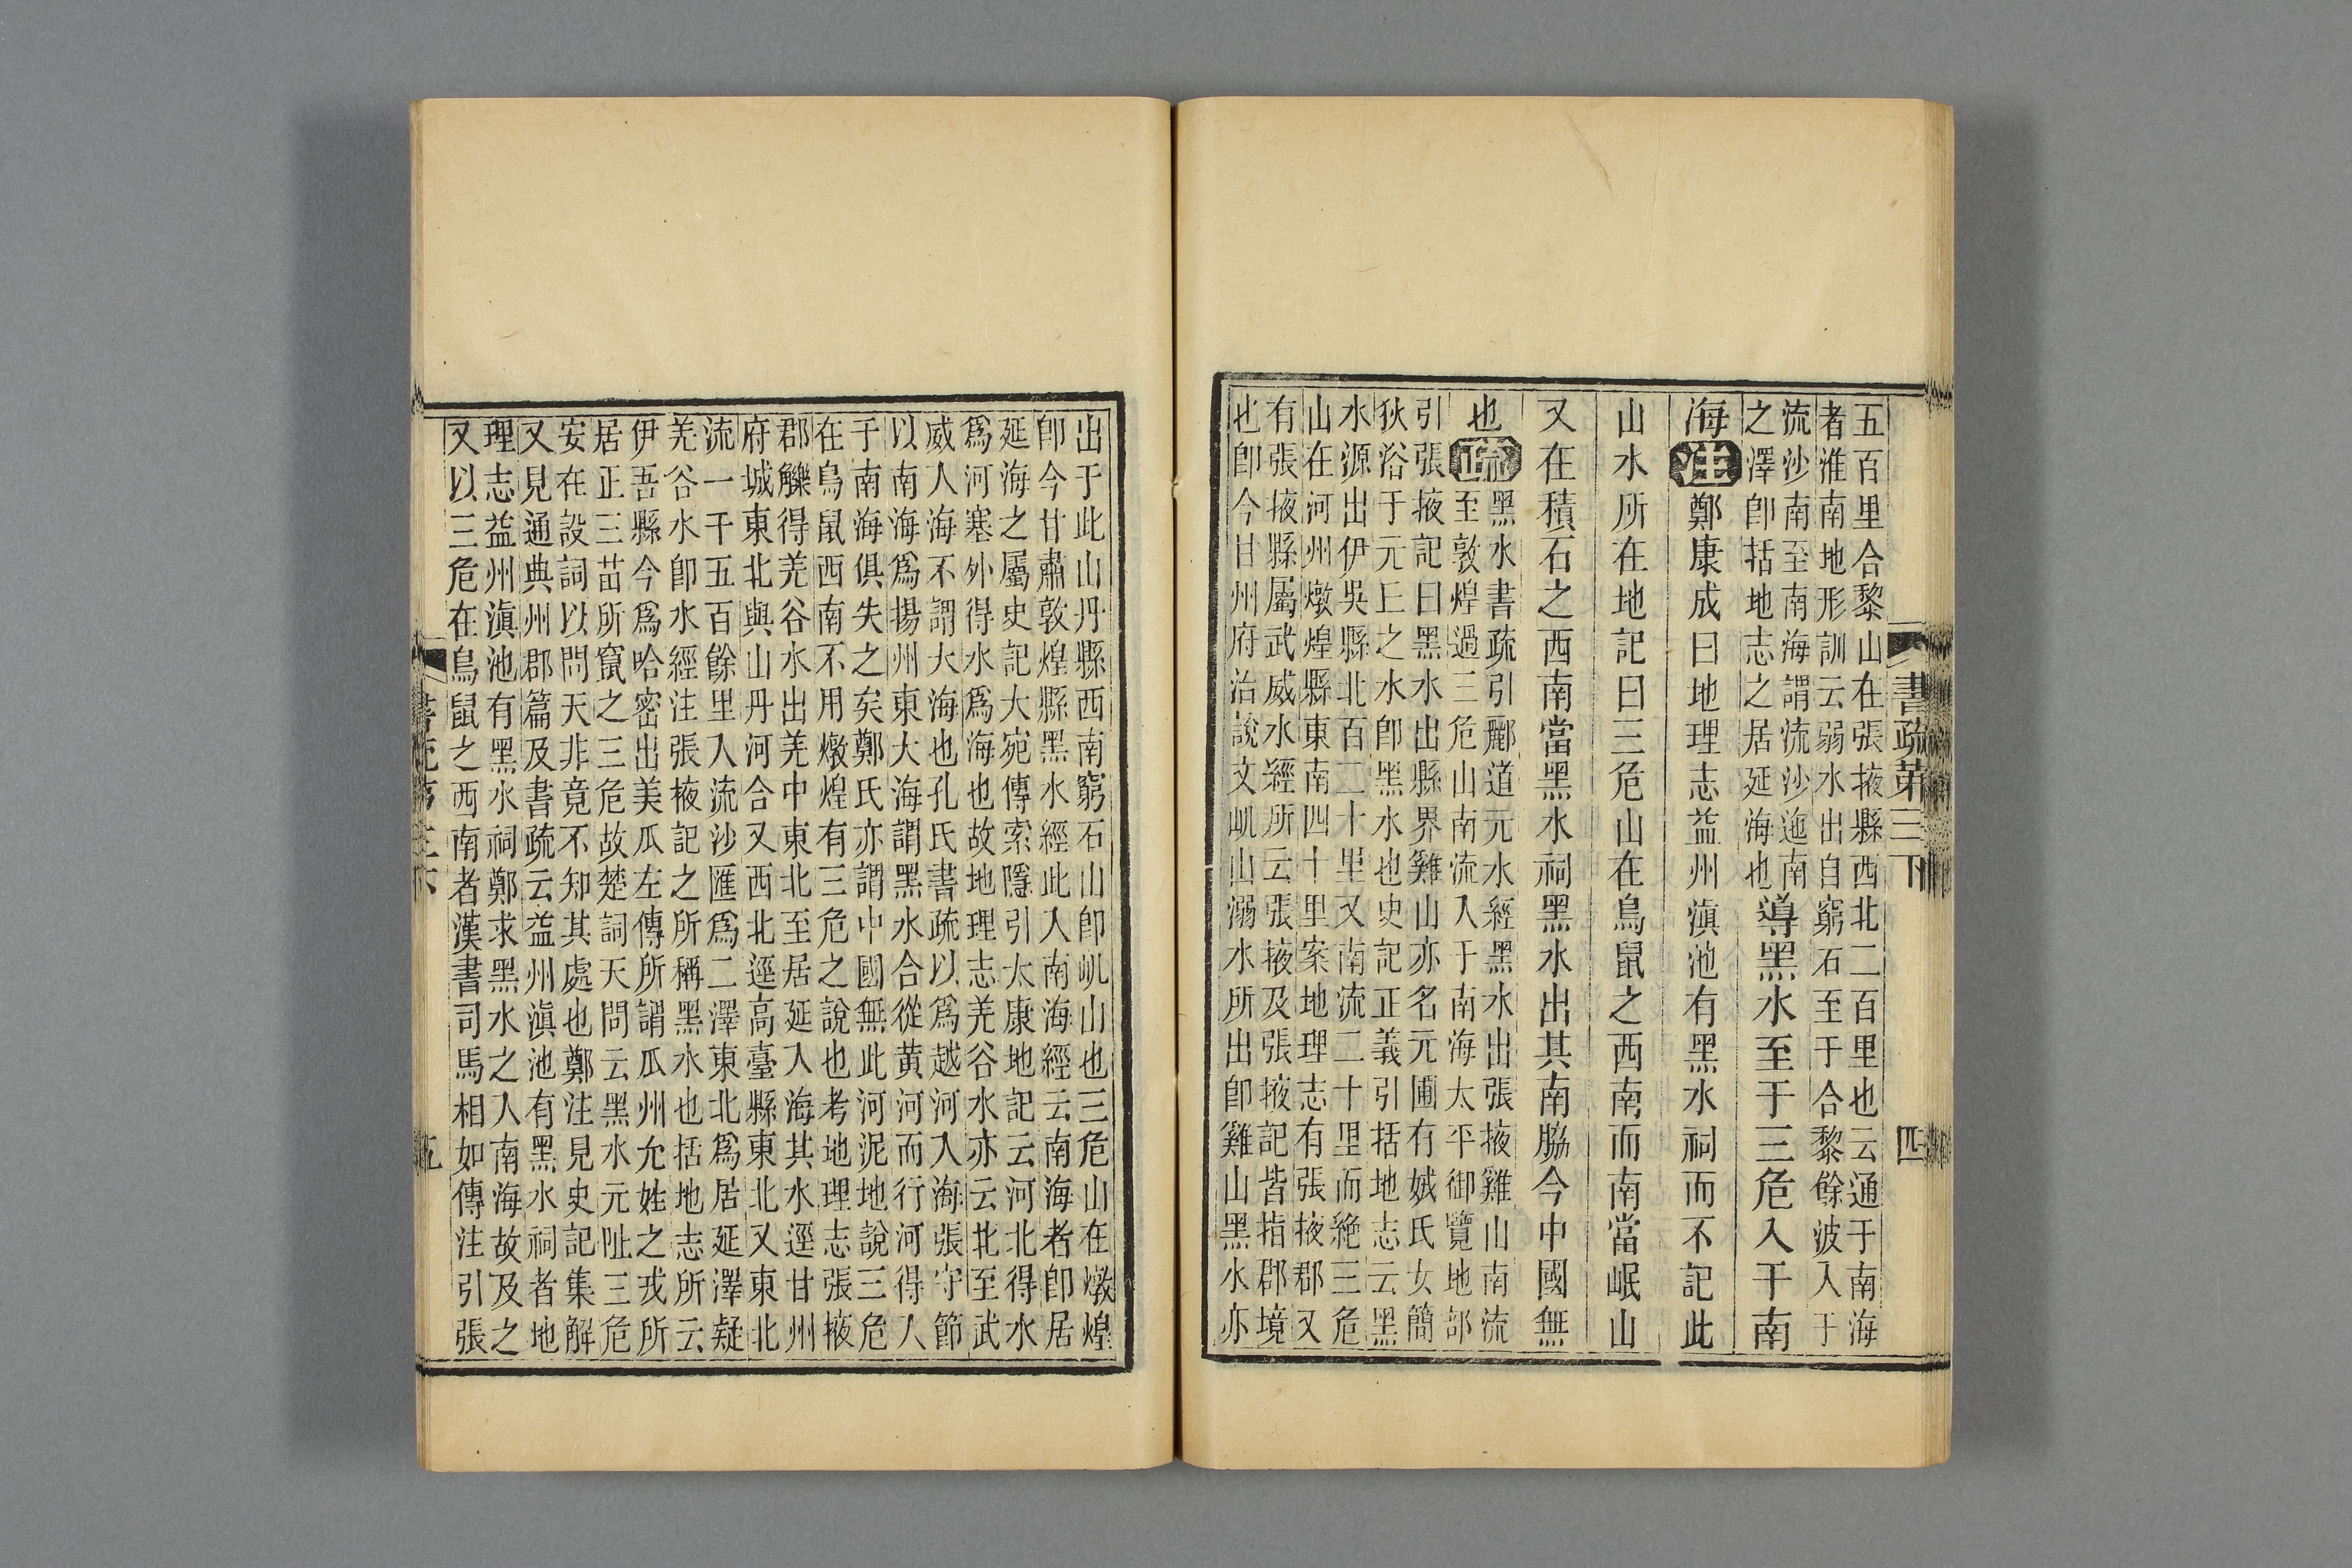 五百里合黎山在張掖縣西北二百里也云通于南海
者淮南地形訓云弱水出自窮石至于合黎餘波入于
流沙南至南海謂流沙迤南
之澤卽括地志之居延海也
導黑水至于三危入于南
海注鄭康成曰地理志益州滇池有黑水祠而不記此
山水所在地記曰三危山在鳥鼠之西南而南當岷山
又在積石之西南當黑水祠黑水出其南脇今中國無
也疏
黑水書疏引酈道元水經黑水出張掖雞山南流
至敦煌過三危山南流入于南海太平御覽地部
引張掖記曰黑水出縣界雞山亦名元圃有娀氏女簡
狄浴于元丘之水卽黑水也史記正義引括地志云黑
水源出伊吳縣北百二十里又南流二十里而絶三危
山在河州燉煌縣東南四十里案地理志有張掖郡又
有張掖縣屬武威水經所云張掖及張掖記皆指郡境
也卽今甘州府治說文屼山溺水所出卽雞山黑水亦
書疏第三下
四
出于此山丹縣西南窮石山卽屼山也三危山在燉煌
卽今甘肅敦煌縣黑水經此入南海經云南海者卽居
延海之屬史記大宛傳索隱引太康地記云河北得水
爲河塞外得水爲海也故地理志羌谷水亦云北至武
威人海不謂大海也孔氏書疏以爲越河入海張守節
以南海爲揚州東大海謂黑水合從黄河而行河得人
于南海俱失之矣鄭氏亦謂中國無此河泥地說三危
在鳥鼠西南不用燉煌有三危之說也考地理志張掖
郡觻得羌谷水出羌中東北至居延入海其水逕甘州
府城東北與山丹河合又西北逕高臺縣東北又東北
流一千五百餘里入流沙匯爲二澤東北爲居延澤疑
羌谷水卽水經注張掖記之所稱黑水也括地志所云
伊吾縣今爲哈密出美瓜左傳所謂瓜州允姓之戎所
居正三苗所竄之三危故楚詞天問云黑水元阯三危
安在設詞以問天非竟不知其處也鄭注見史記集解
又見通典州郡篇及書疏云益州滇池有黑水祠者地
理志益州滇池有黑水祠鄭求黑水之入南海故及之
又以三危在鳥鼠之西南者漢書司馬相如傳注引張